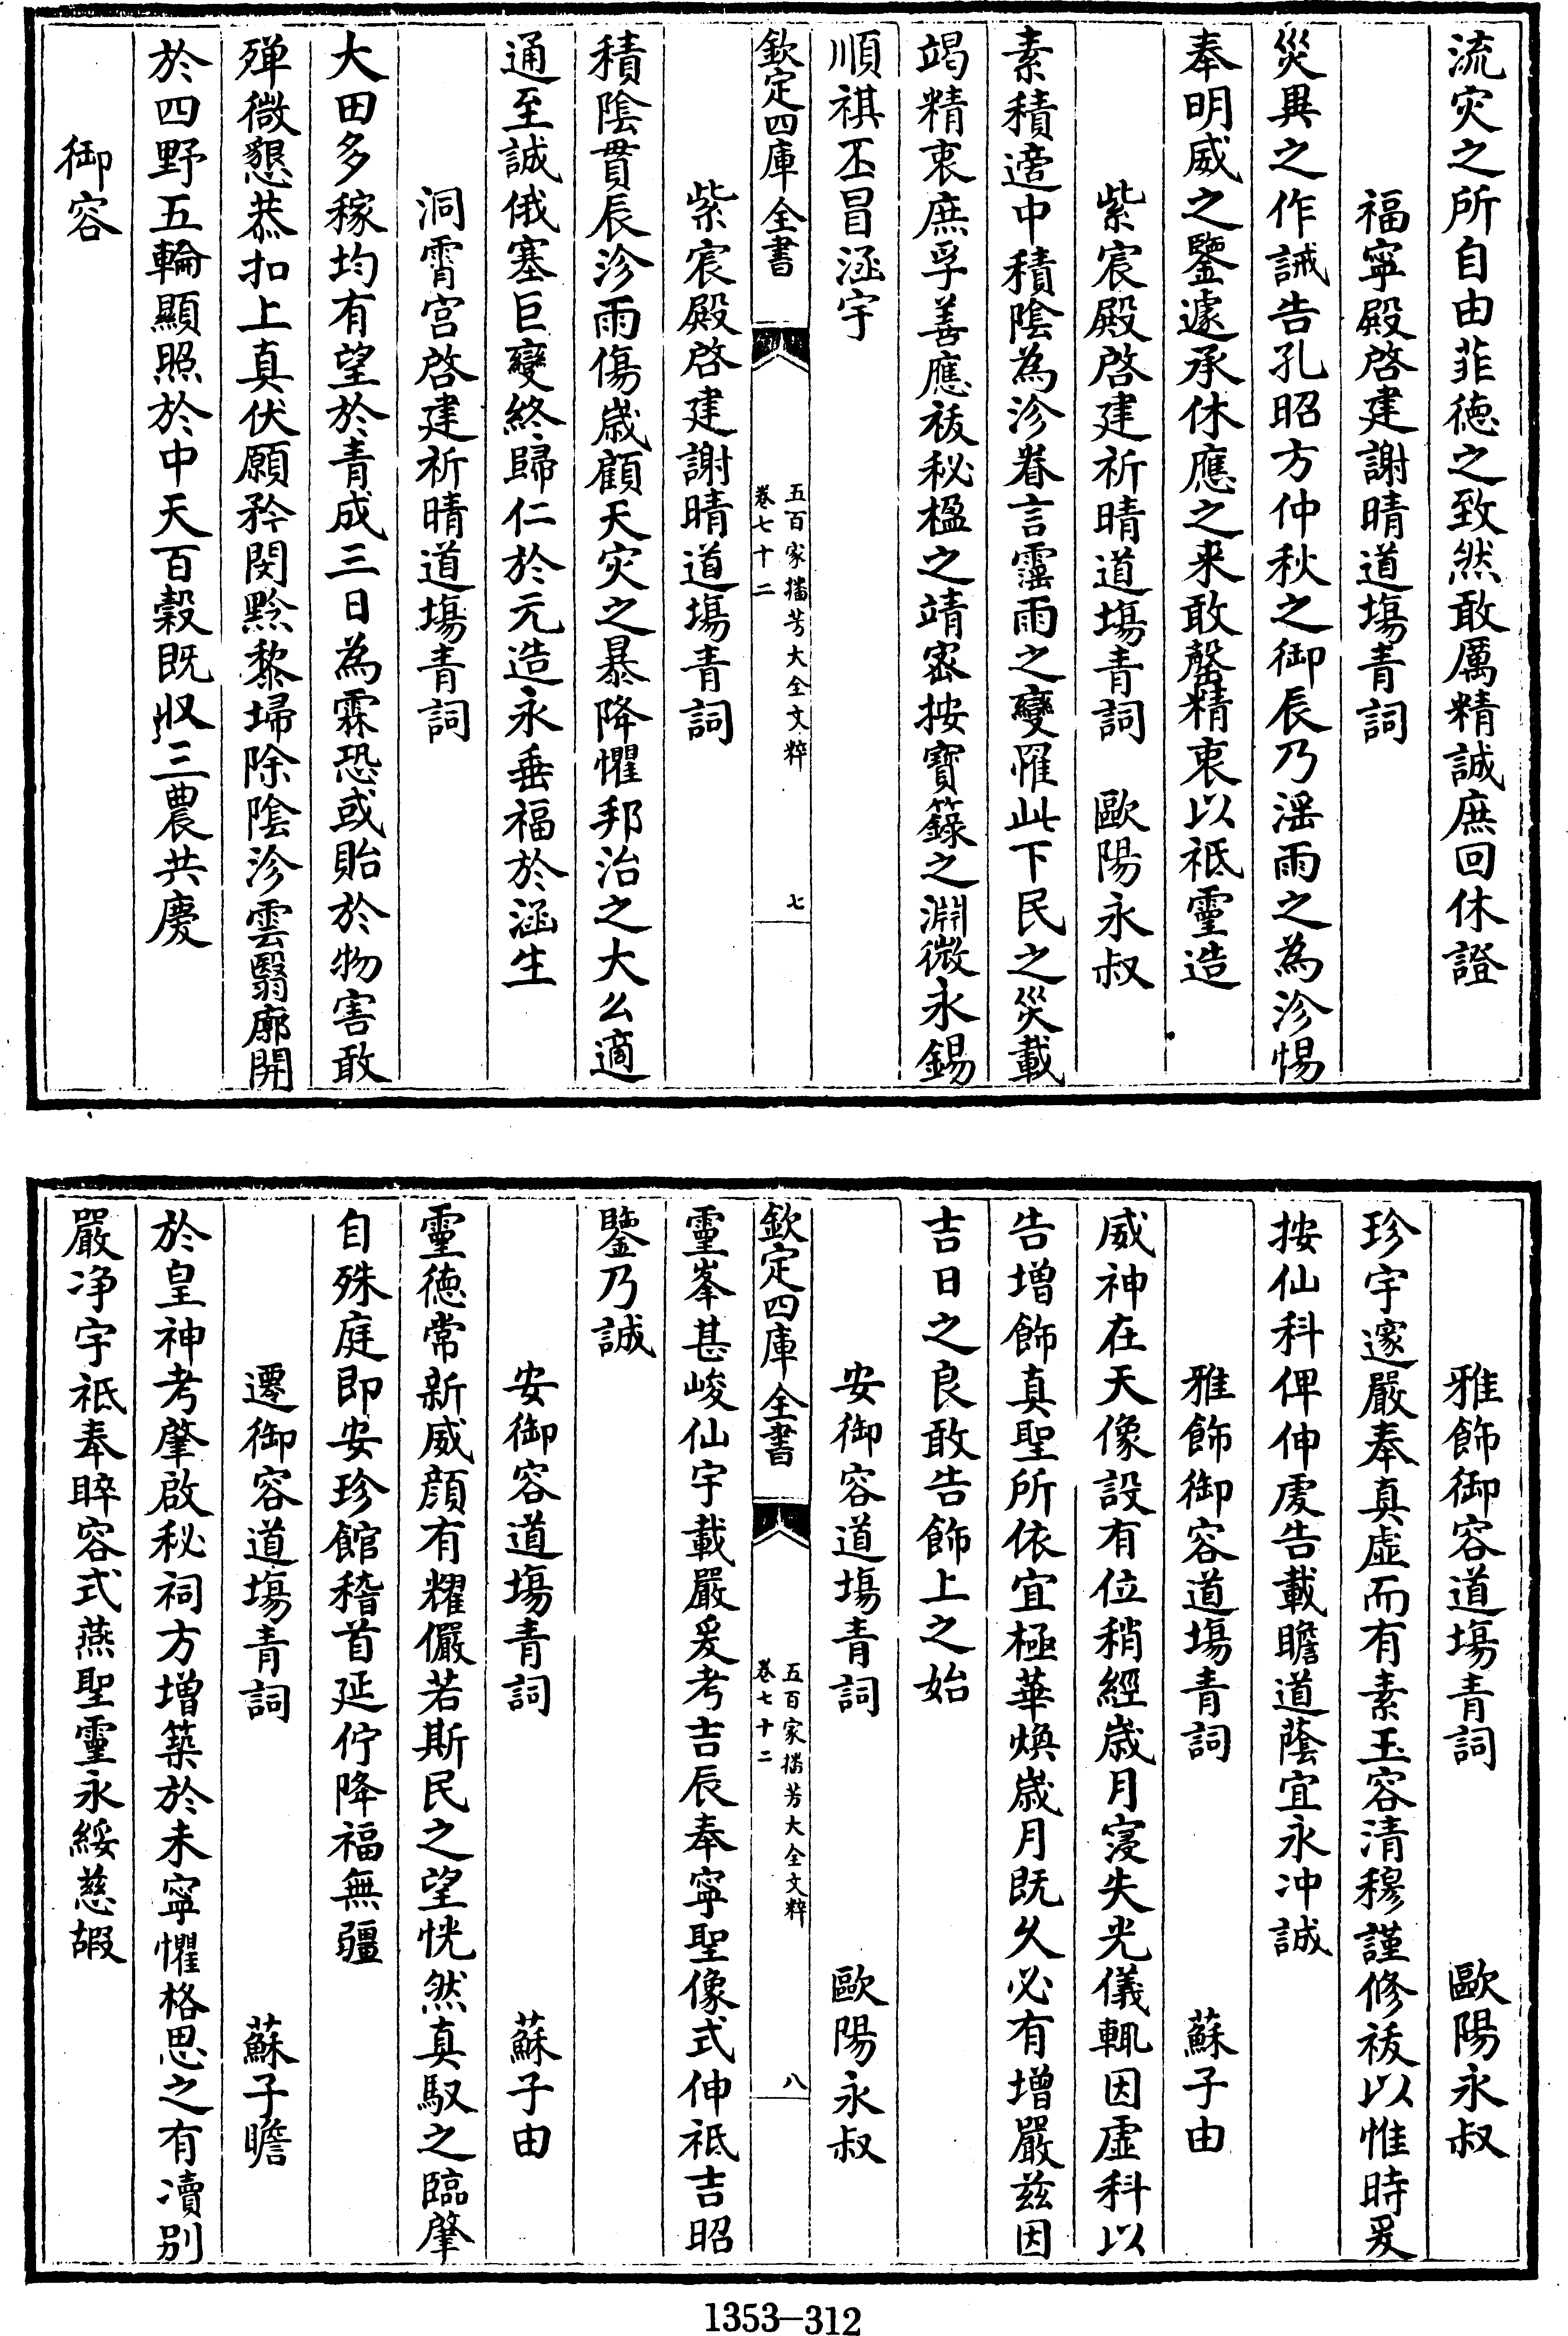 流灾之所自由菲徳之致然敢厲精誠庶回休證
福寧殿啓建謝晴道塲青詞
災異之作誡告孔昭方仲秋之御辰乃滛雨之為沴惕
奉明威之鑒遽承休應之来敢罄精衷以祗靈造
紫宸殿啓建祈晴道塲青詞　歐陽永叔
素積適中積陰為沴眷言霪雨之變罹此下民之災載
竭精衷庶孚善應祓秘楹之靖宻按寳籙之淵微永錫
順祺丕冒涵宇
欽定四庫全書
五百家播芳大全文粹
卷七十二
七
紫宸殿啓建謝晴道塲青詞
積陰貫辰沴雨傷歳顧天灾之暴降懼邦治之大么適
通至誠俄塞巨變終歸仁於元造永垂福於涵生
洞霄宫啓建祈晴道塲青詞
大田多稼均有望於青成三日為霖恐或貽於物害敢
殫微懇恭扣上真伏願矜閔黔黎埽除陰沴雲翳廓開
於四野五輪顯照於中天百穀既収三農共慶
御容
雅飾御容道塲青詞　歐陽永叔
珍宇邃嚴奉真虚而有素玉容清穆謹修祓以惟時爰
按仙科俾伸虔告載瞻道蔭宜永冲誠
雅飾御容道塲青詞　蘇子由
威神在天像設有位稍經歳月寖失光儀輒因虚科以
告增飾真聖所依宜極華煥歳月既久必有增嚴兹因
吉日之良敢告飾上之始
安御容道塲青詞　歐陽永叔
欽定四庫全書
五百家播芳大全文粹
卷七十二
八
靈峯甚峻仙宇載嚴爰考吉辰奉寧聖像式伸祗吉昭
鑒乃誠
安御容道塲青詞　蘇子由
靈徳常新威顔有耀儼若斯民之望恍然真馭之臨肇
自殊庭即安珍館稽首延佇降福無疆
遷御容道塲青詞　蘇子瞻
於皇神考肇啟秘祠方增築於未寧懼格思之有瀆别
嚴净宇祗奉睟容式燕聖靈永綏慈嘏
1353-312